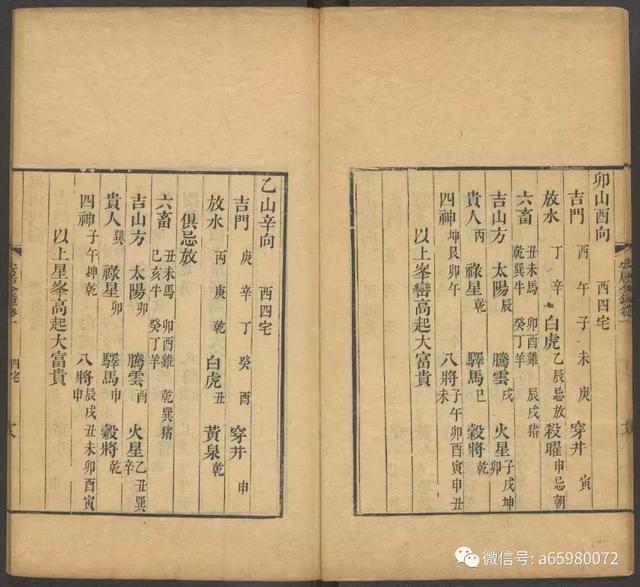 卯山酉向
西四宅
吉門 酉午子未庚 穿井 寅
放水 丁辛 白虎 乙辰忌放 殺曜 申忌朝
六畜 丑未馬 卯酉雞 乾巽猪
乾巽牛 癸丁羊
吉山方 太陽 辰 騰雲 戌 火星 子戌坤卯
貴人 丙 祿星 卯 驛馬 巳 穀將 乾
四神 坤艮卯午 八將 子午卯酉寅申丑未
以上峯巒高起大富貴
乙山辛向
西四宅
吉門 庚辛丁癸酉 穿井 申
放水 丙庚乾 白虎 丑 黃泉 乾
俱忌放
六畜 丑未馬 卯酉雞 乾巽猪
巳亥牛 癸丁羊
吉山方 太陽 卯 騰雲 酉 火星 乙丑巽辛
貴人 巽 祿星 卯 驛馬 申 穀將 乾
四神 子午坤乾 八將 辰戌丑未卯酉寅申
以上星峯高起大富貴
四宅
微信号: a65980072